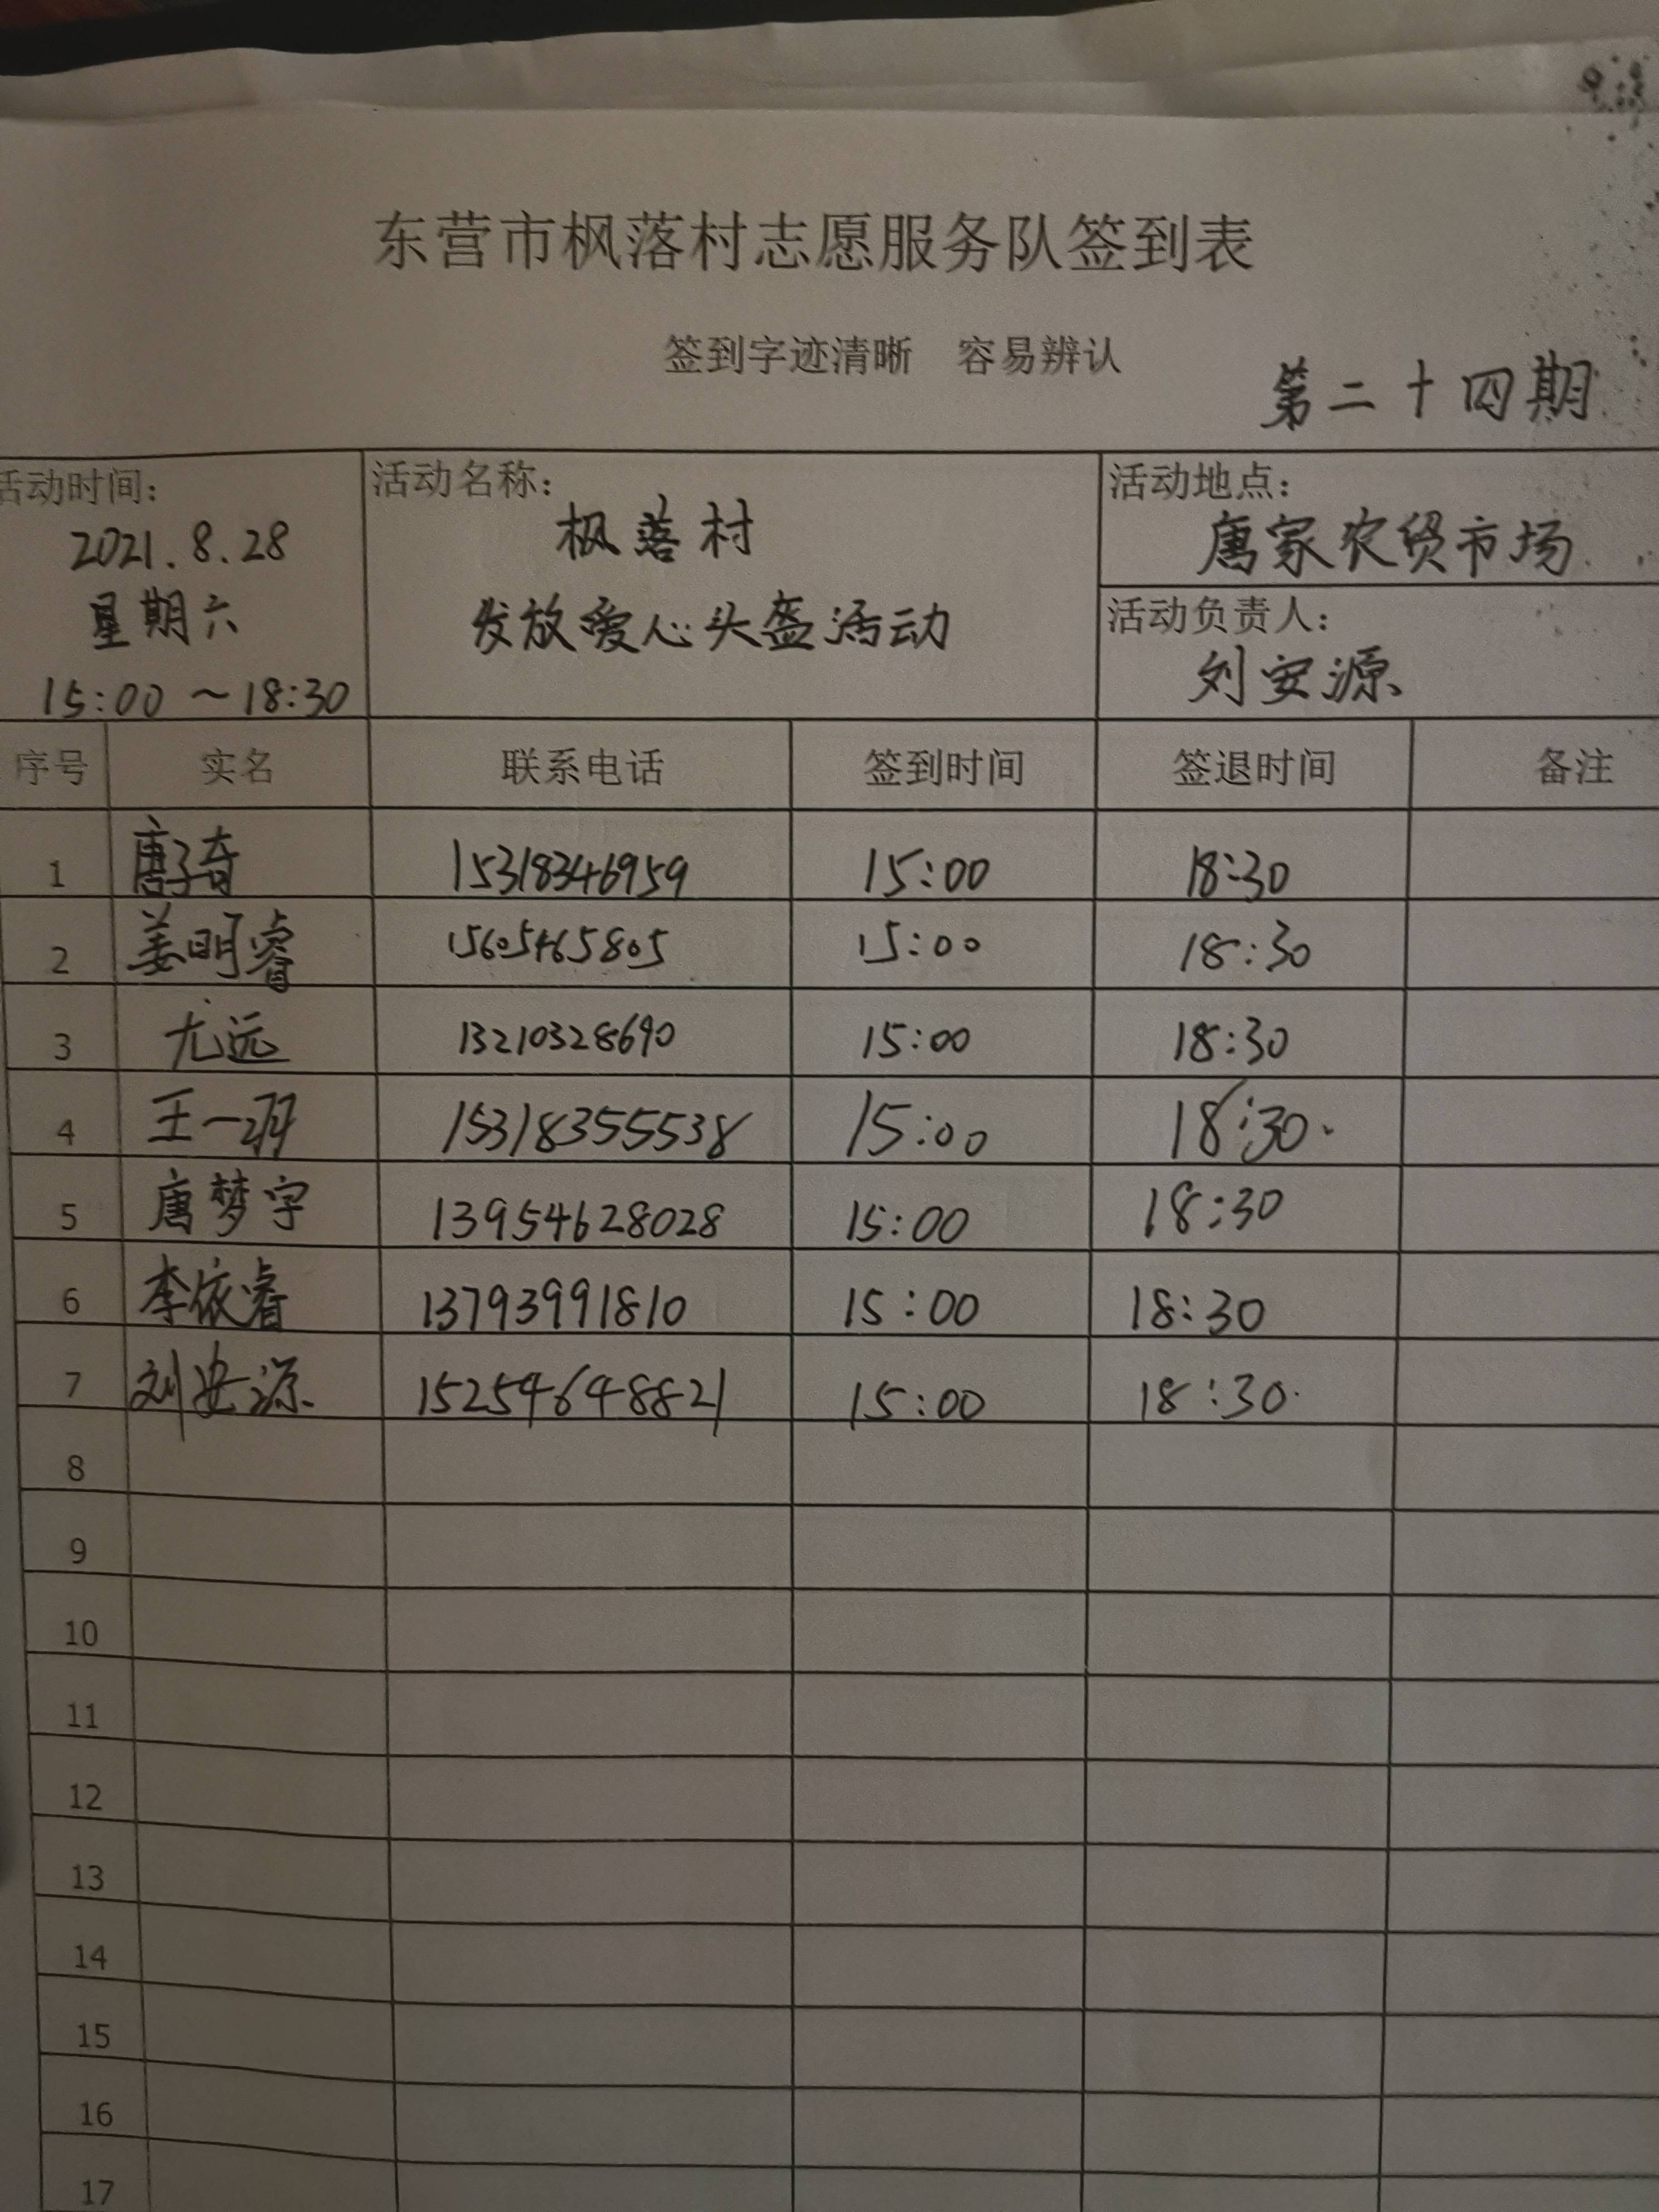 东营市枫落村志愿服务队签到表
签到字迹清晰 容易辨认
第二十四期
活动时间:
2021.8.28
星期六
15:00~18:30
活动名称:
枫落村
发放爱心头盔活动
活动地点:
唐家农贸市场
活动负责人:
刘安源
序号 实名 联系电话 签到时间 签退时间 备注
1 唐子奇 15318346959 15:00 18:30
2 姜明睿 15605465805 15:00 18:30
3 尤远 13210328690 15:00 18:30
4 王一 15318355538 15:00 18:30.
5 唐梦宇 13954628028 15:00 18:30
6 李依睿 13793991810 15:00 18:30
7 刘安源 15254648821 15:00 18:30.
8
9
10
11
12
13
14
15
16
17